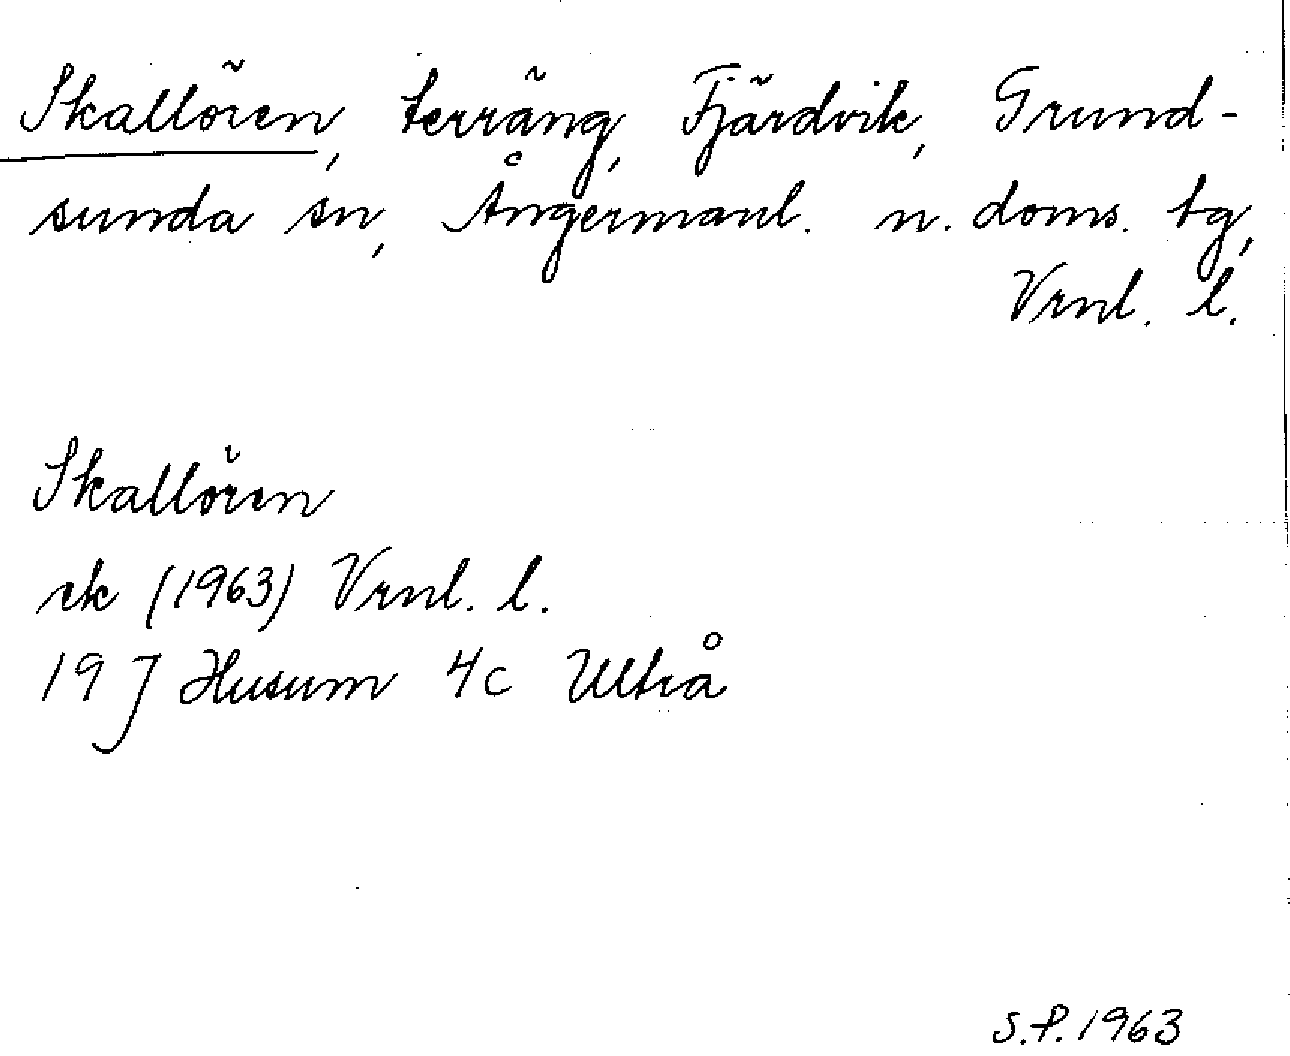 Skallören, terräng, Fjärdvik, Grund-
sunda sn, Ångermanl. n. doms. tg,
Vrnl. l.
Skallören
ek (1963) Vrnl. l.
19 J Husum 4c Ultrå
S.P. 1963